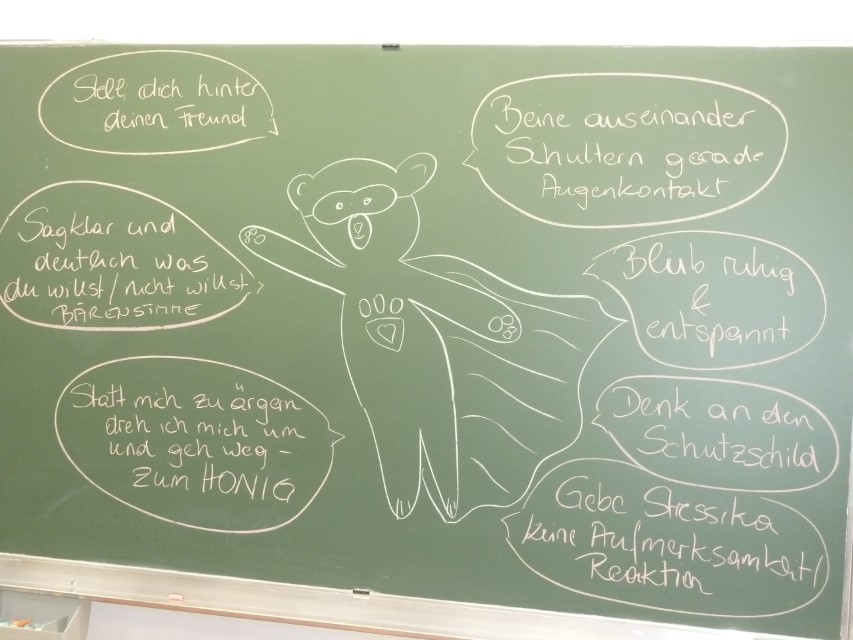 Stell dich hinter
deinen Freund
Sag klar und
deutlich was
du willst/nicht willst
BÄRENSTIMME
Statt mich zu ärgern
dreh ich mich um
und geh weg -
zum HONIG
Beine auseinander
Schultern gerade
Augenkontakt
Bleib ruhig
&
entspannt
Denk an den
Schutzschild
Gebe Stressika
keine Aufmerksamkeit/
Reaktion